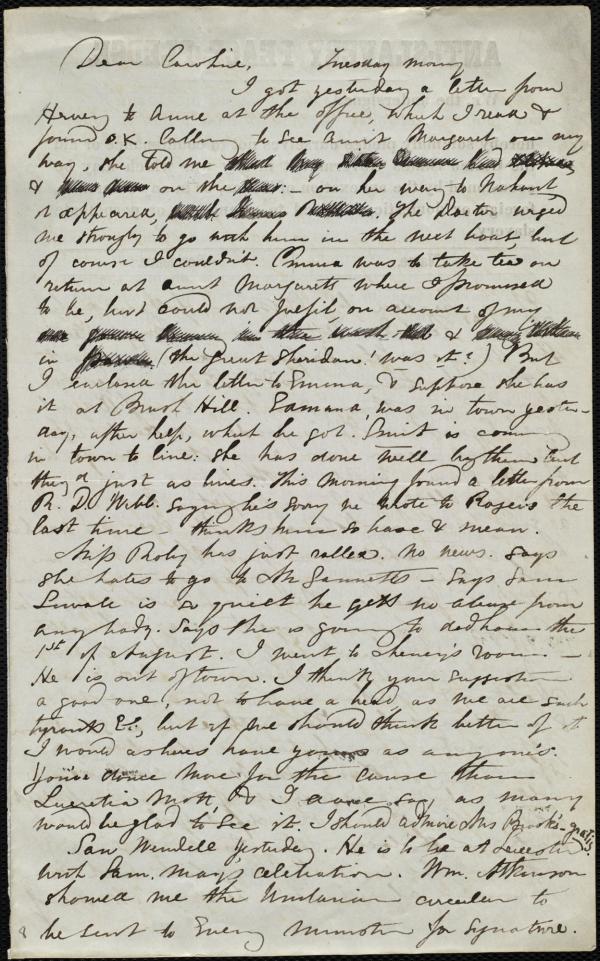 Dear Caroline, Tuesday morng
I got yesterday a letter from
Hervey to Anne at the office, which I read &
found O.K. Calling to see Aunt Margaret on my
way, she told me
& on the :- on her way to Nahant
it appeared, The Doctor urged
me strongly to go with him in the next boat, but
of course I couldn't. Emma was to take tea on
return at aunt Margarets where I promised
to be, but could not fulfil, on account of my
&
in (the great Sheridan! was it?) But
I enclosed the letter to Emma, & suppose she has
it at Brush Hill. Eamana, was in town yester-
day, after help, which he got. Smit is coming
in town to live: she has done well by them but
they'd just as lives. This morning found a letter from
R. D. Webb. saying he's sorry he wrote to Rogers the
last time - thinks him so base & mean.
Miss Roby has just called. No news. says
she hates to go to Mr Gannetts - says Sam
is so quiet he gets no abuse from
anybody. Says she is going to dedham the
1st of August. I went to room. -
He is out of town. I think your suggestion
a good one, not to have a head, as we are such
tyrants &c., but if we should think better of it
I would as lives have yours as anyone's.
You've done more for the cause than
Lucretia Mott, & I say, as many
would be glad to see it. I should admire Mrs Brooks' gratis.
Saw Wendell yesterday. He is to be at Leicester
with Sam. May's celebration. Wm. Atkinson
showed me the Unitarian circular to
be sent to Every minister for signature.